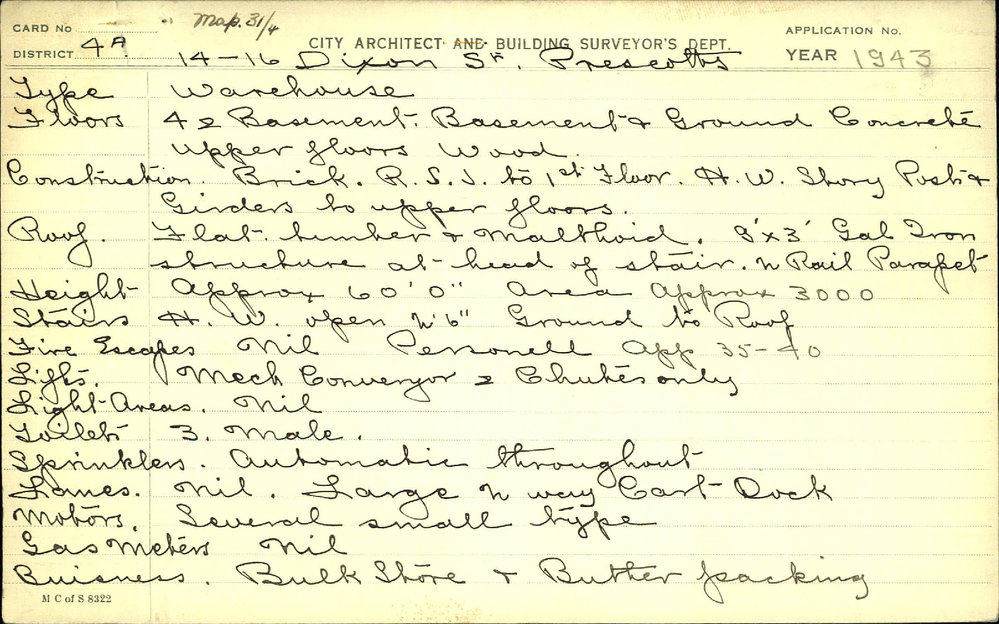 CARD No Map. 31/4
CITY ARCHITECT AND BUILDING SURVEYOR'S DEPT.
APPLICATION No.
DISTRICT 4A
YEAR 1943
14-16 Dixon St. Prescotts
Type Warehouse
Floors 4 & Basement. Basement & Ground Concrete
upper floors Wood.
Construction. Brick. R.S.J. to 1st Floor. H.W. Story Posts &
Girders to upper floors.
Roof. Flat timber & Malthoid. 8'x3' Gal Iron
structure at head of stair. Rail Parapet
Height Approx 60'0" Area Approx 3000
Stairs H.W. open Ground to Roof
Fire Escapes Nil Personell App 35-40
Lifts. Mech Conveyor & Chutes only
Light Areas. Nil
Toilets 3. Male.
Sprinklers. Automatic throughout
Lanes. Nil. Large way Cart Dock
Motors. Several small type
Gas Meters Nil
Buisness. Bulk Store & Butter packing
M C of S 8322